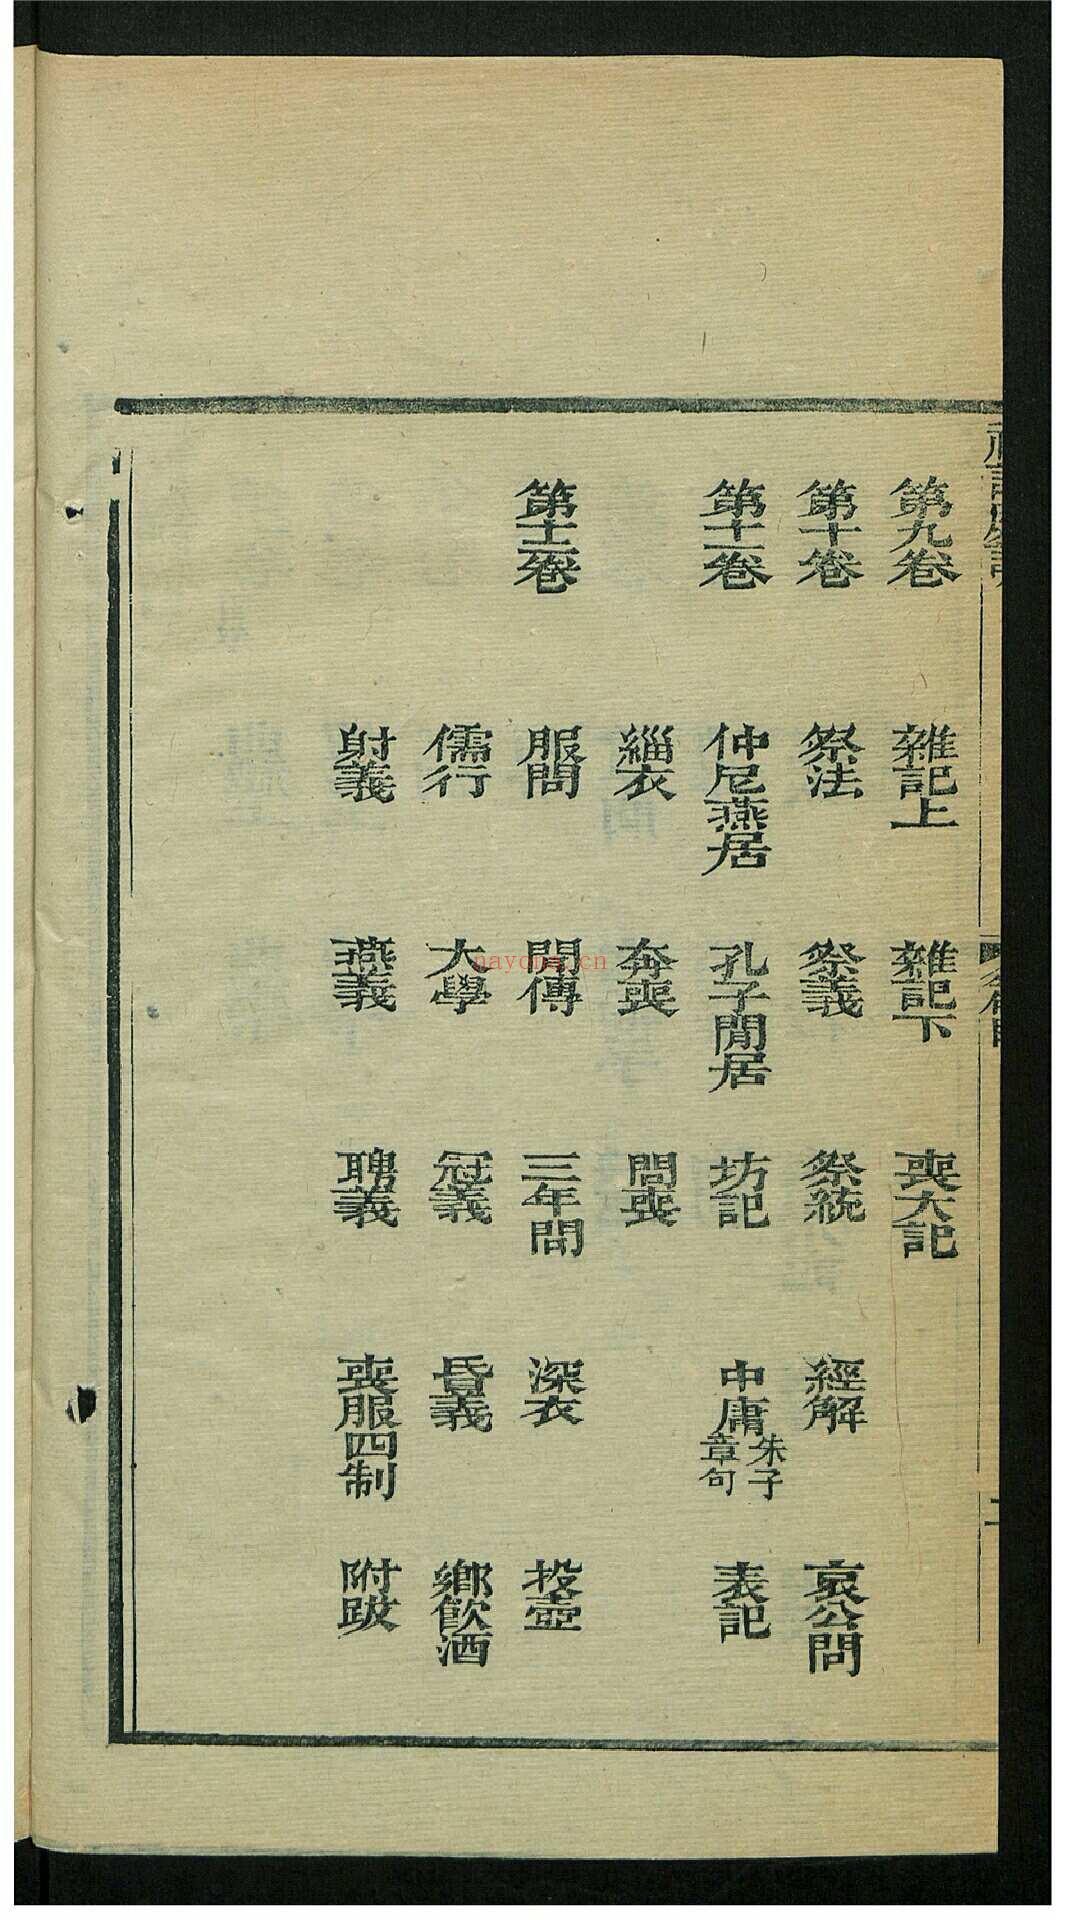 第九卷　雜記上　雜記下　喪大記
第十卷　祭法　祭義　祭統　經解　哀公問
第十一卷　仲尼燕居　孔子閒居　坊記　中庸朱子章句　表記
緇衣　奔喪　問喪
第十二卷　服問　間傳　三年問　深衣　投壺
儒行　大學　冠義　昏義　鄉飲酒
射義　燕義　聘義　喪服四制　附跋
nayona.cn